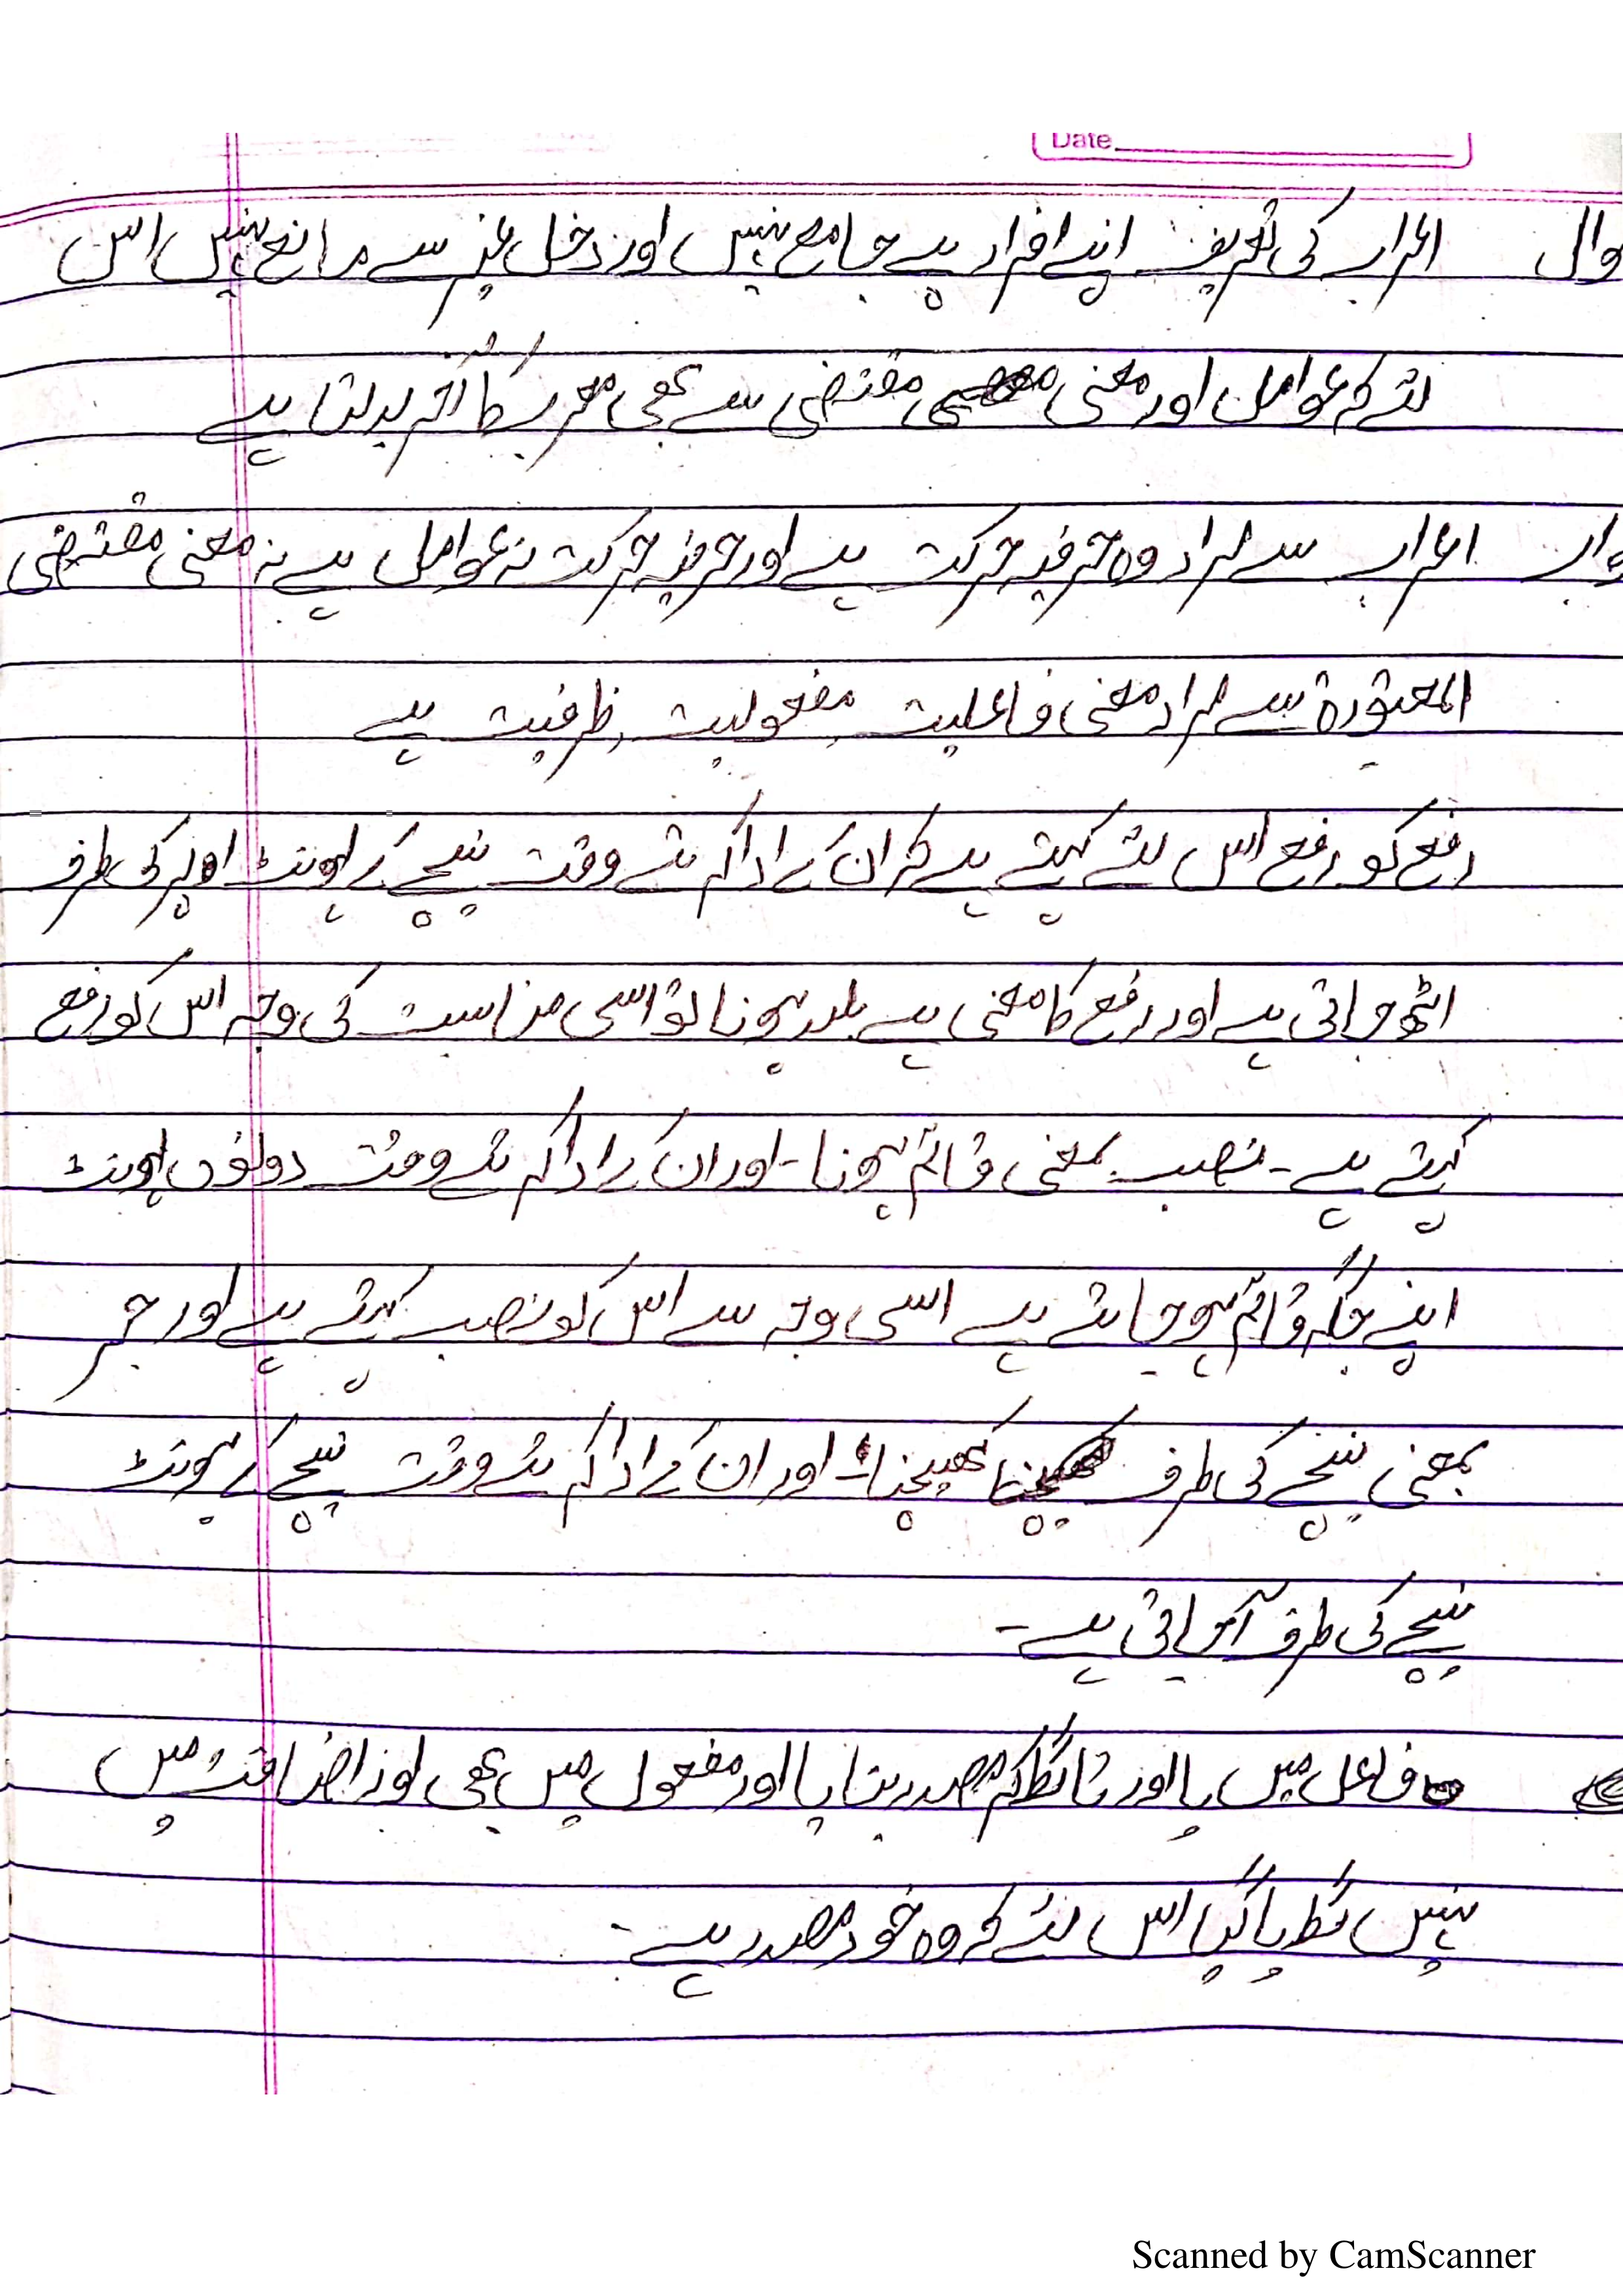 Date
وال اعراب کی تعریف اپنے افراد پے جامع نہیں اور دخل غیر سے مانع نہیں اس
لئے کہ عوامل اور معنی مقتضی سے بھی معرب کا آخر بدلتا ہے
واب اعراب سے مراد وہ حرف حرکت ہے اور حرف حرکت نہ عوامل ہے نہ معنی مقتضی
المعتورۃ سے مراد معنی فاعلیت مفعولیت ظرفیت ہے
رفع کو رفع اس لئے کہتے ہے کہ ان کے ادا کرتے وقت نیچے کے ہونٹ اوپر کی طرف
اٹھ جاتی ہے اور رفع کا معنی ہے بلند ہونا تو اسی مناسبت کی وجہ اس کو رفع
کہتے ہے - نصب بمعنی قائم ہونا - اور ان کے ادا کرتے وقت دونوں ہونٹ
اپنے جگہ قائم ہو جاتے ہے اسی وجہ سے اس کو نصب کہتے ہے اور جر
بمعنی نیچے کی طرف کھیچنا - اور ان کے ادا کرتے وقت نیچے کے ہونٹ
نیچے کی طرف آ جاتی ہے -
فاعل میں یا اور تا لگا کر مصدر بنایا اور مفعول میں بھی اور اضافت میں
نہیں لگایا گیا اس لئے کہ وہ خود مصدر ہے -
Scanned by CamScanner